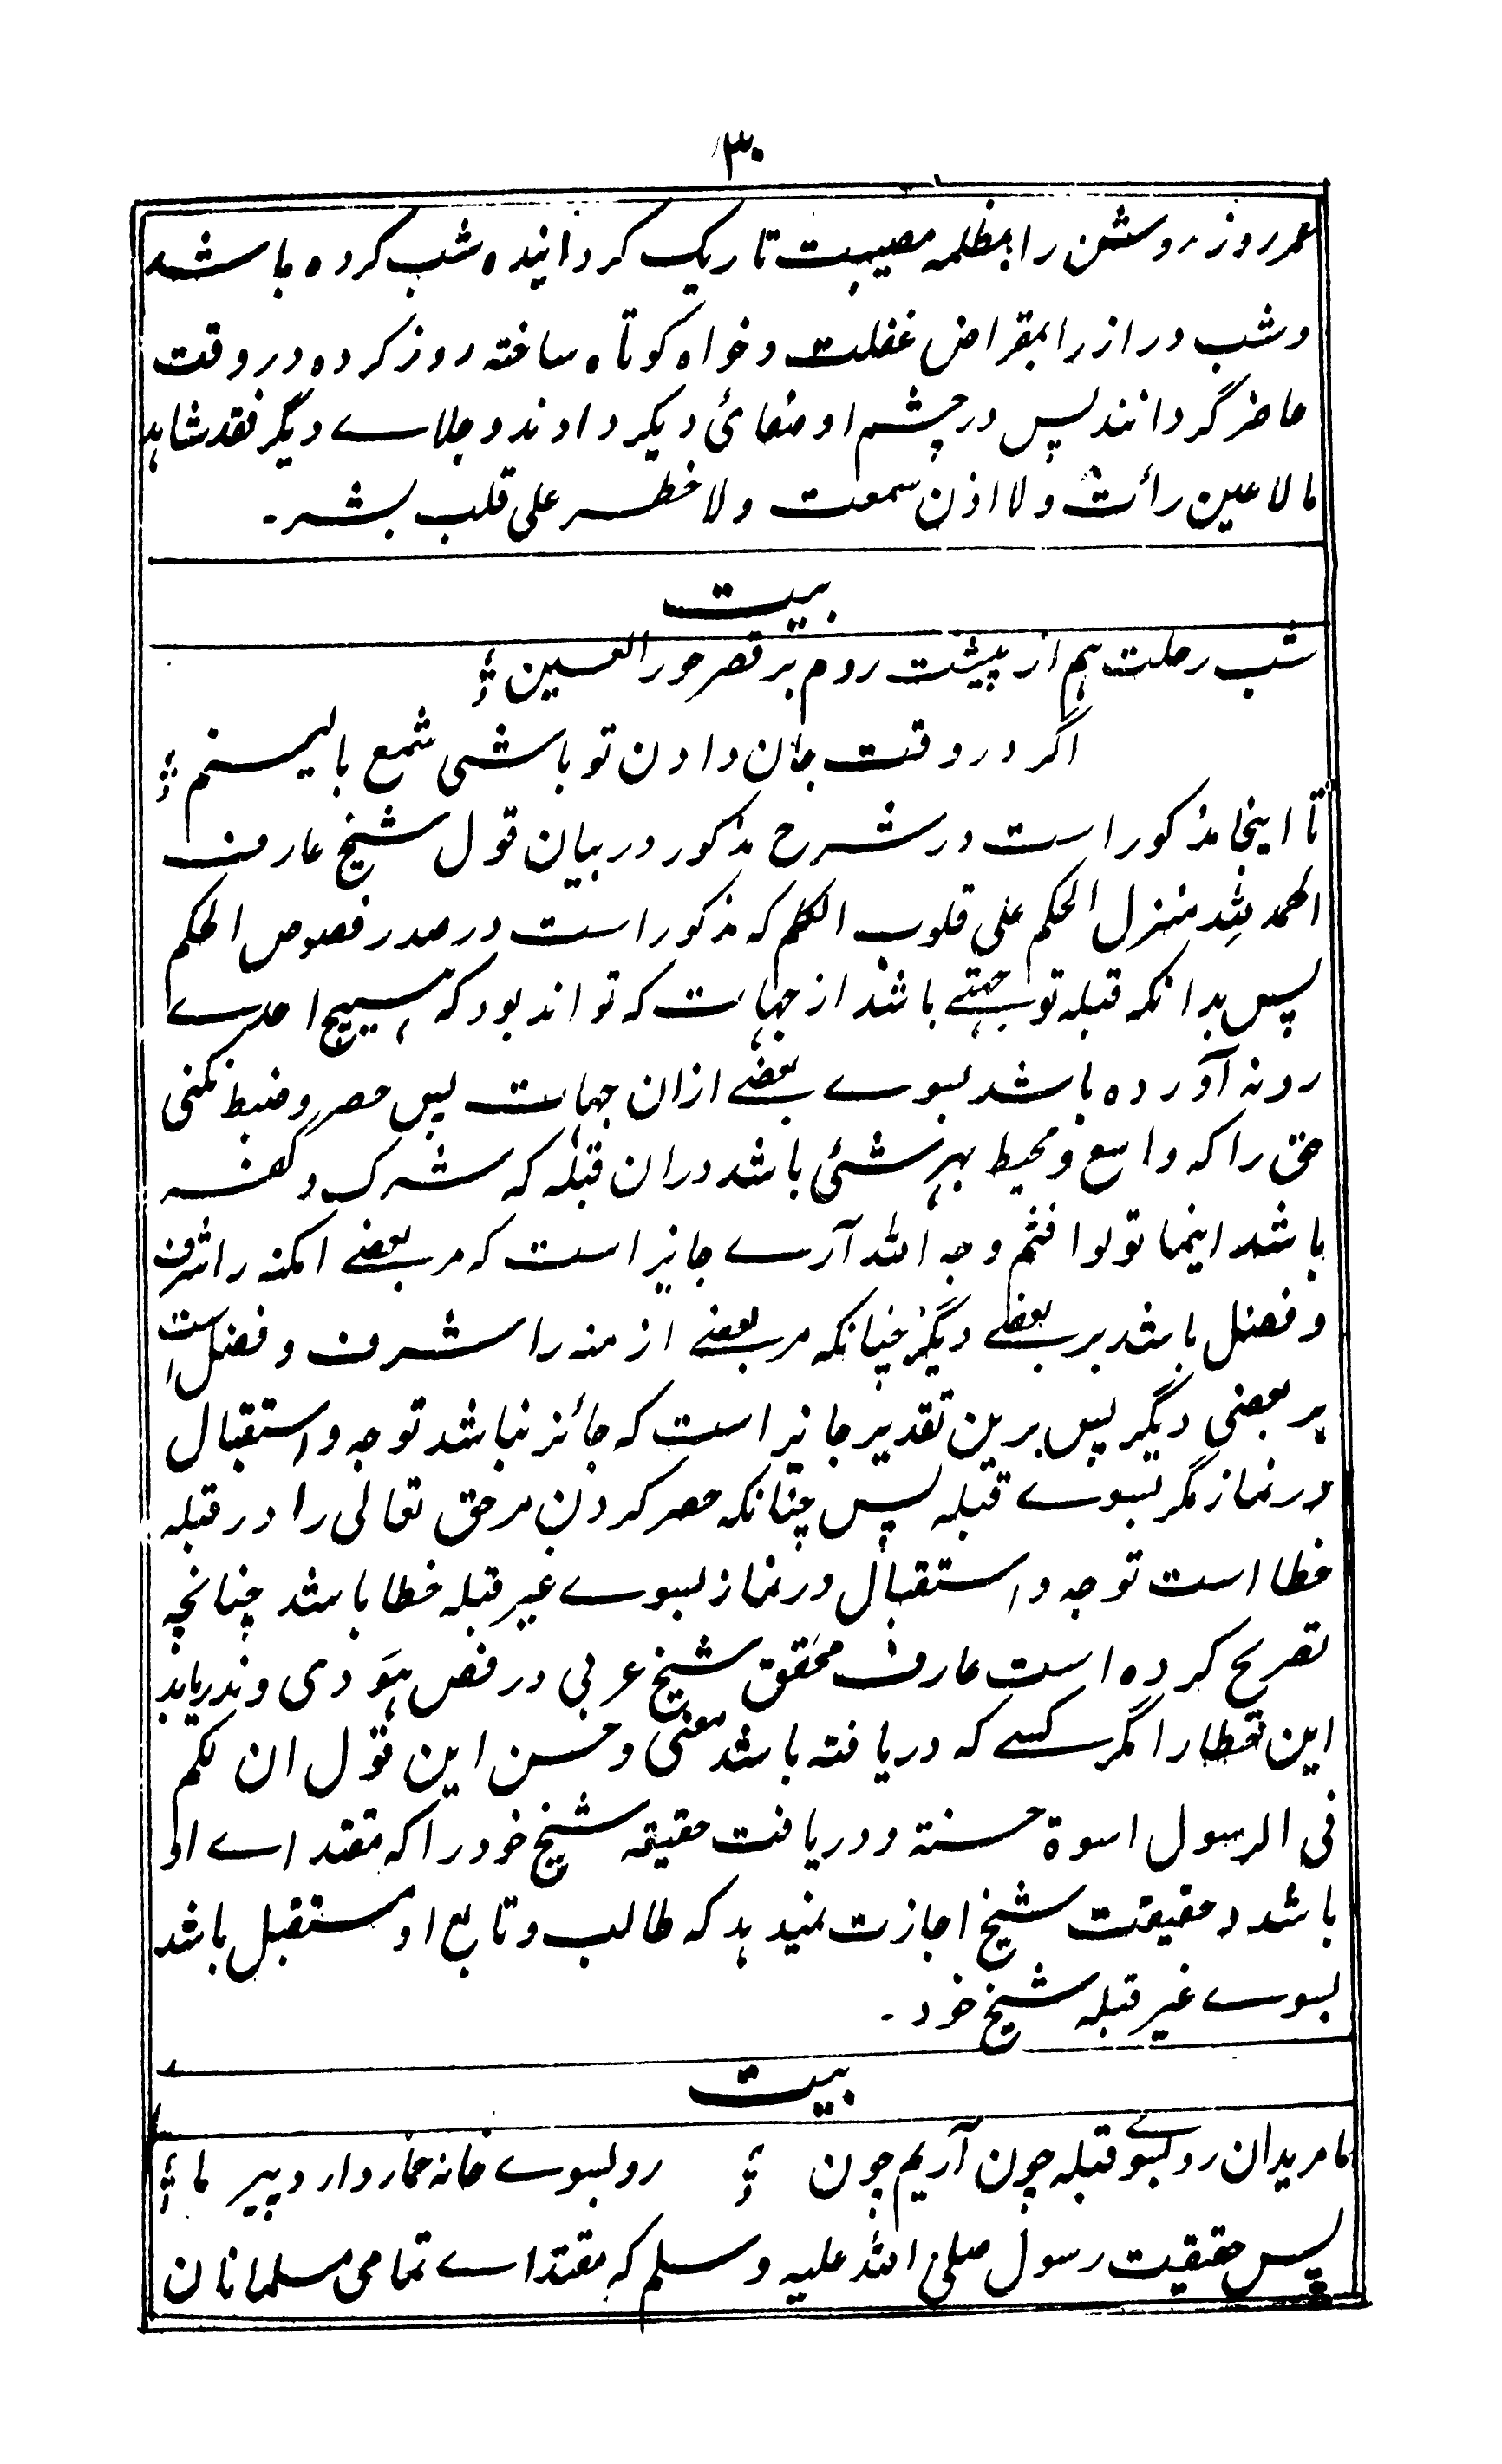 ۳۰
عمر روز روشن را بمظلمه مصیبت تاریک گردانیده شب کرده باشد
و شب دراز را بمقراض غفلت و خواه کوتاه ساخته روز کرده در وقت
حاضر گردانند پس در چشم او ضفائی دیگر دادند و جلاے دیگر فقد شاهد
ما لا عین رأت و لا اذن سمعت و لا خطر علی قلب بشر۔
بیت
شب رحلت هم از پیشت روم بر قصر حور العین
اگر در وقت جان دادن تو باشی شمع بالینم
تا اینجا مذکور است در شرح مذکور در بیان قول شیخ عارف
الحمد لله منزل الحکم علی قلوب الکلم که مذکور است در صدر فصوص الحکم
پس بدانکه قبله تو جهتے باشد از جهات که تواند بود که هیچ احدے
رو نه آورده باشد بسوے بعضے ازان جهات پس حصر و ضبط نکنی
حق را که واسع و محیط بهر شئی باشد دران قبله که شرک و کفر
باشد اینما تولوا فثم وجه الله آرے جائز است که مر بعضے امکنه را شرف
و فضل باشد بر بعضے دیگر چنانکه مر بعضے ازمنه را شرف و فضل است
بر بعضی دیگر پس برین تقدیر جائز است که جائز نباشد توجه و استقبال
در نماز مگر بسوے قبله پس چنانکه حصر کردن مر حق تعالی را در قبله
خطا است توجه و استقبال در نماز بسوے غیر قبله خطا باشد چنانچه
تصریح کرده است عارف محقق شیخ عربی در فص هودی و ندریابد
این خطا را مگر کسے که دریافته باشد معنی و حسن این قول ان لکم
فی الرسول اسوة حسنة و دریافت حقیقة شیخ خود را که مقتداے او
باشد و حقیقت شیخ اجازت نمیدهد که طالب و تابع او مستقبل باشد
بسوے غیر قبله شیخ خود۔
بیت
ما مریدان رو بسوے قبله چون آریم چون    رو بسوے خانه خمار دارد پیر ما
پس حقیقت رسول صلی الله علیه و سلم که مقتداے تمامی مسلمانان